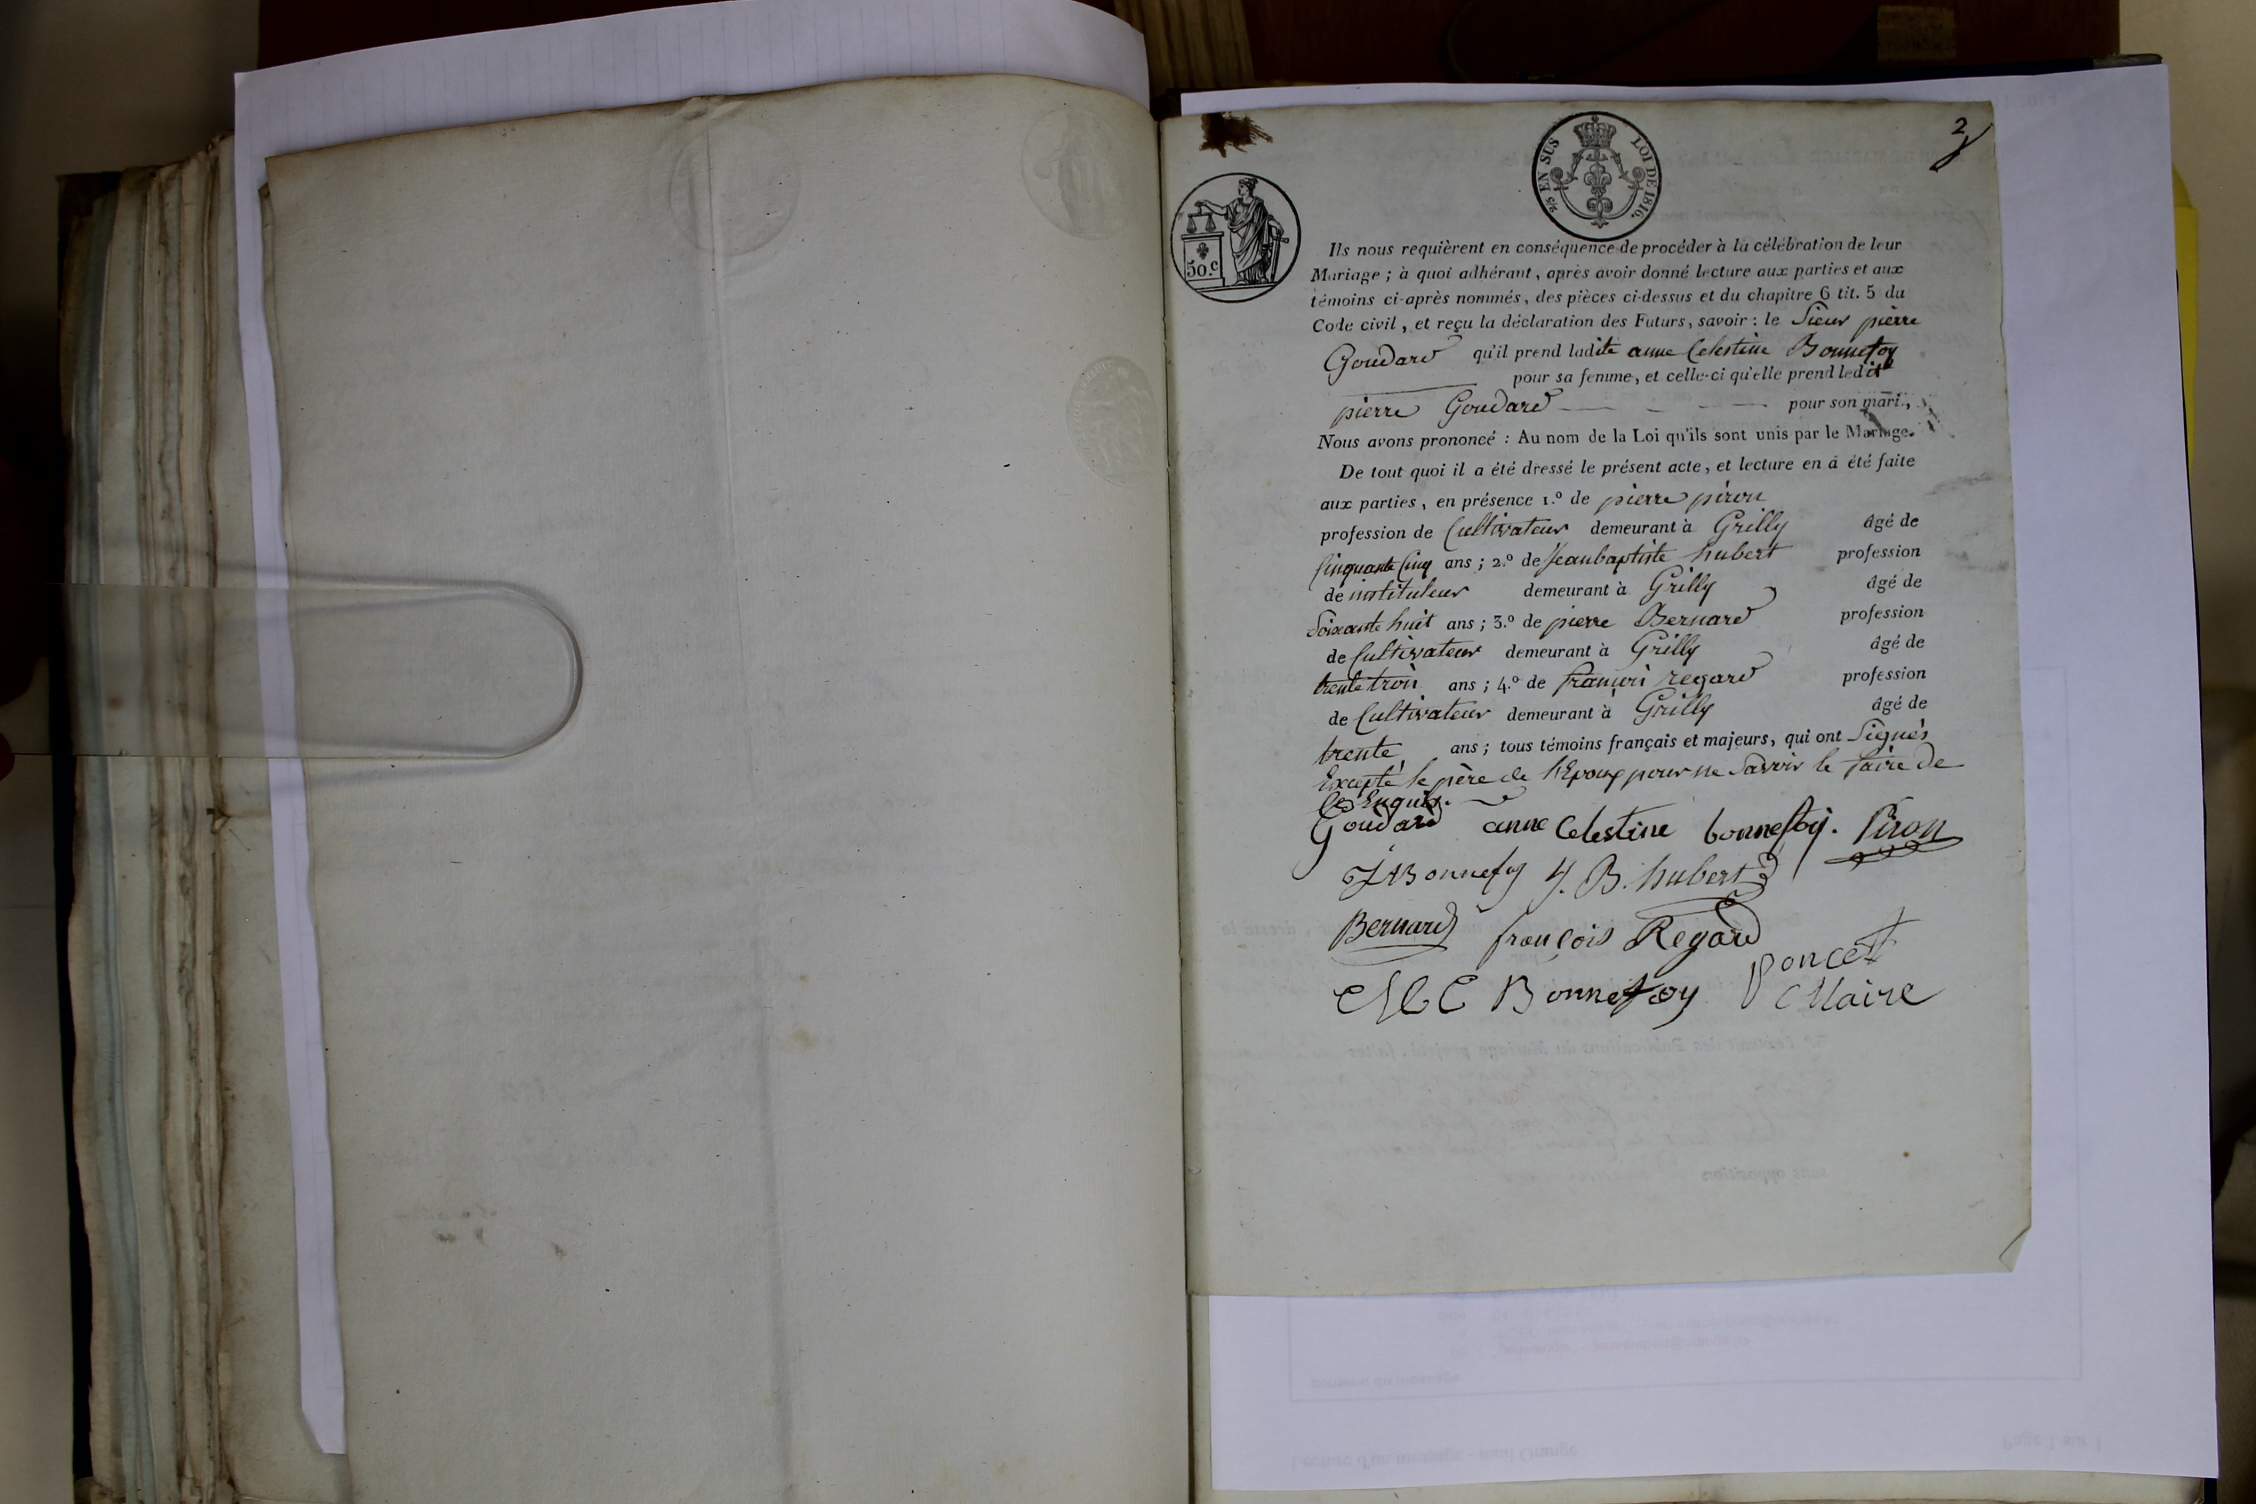 2
2/5 EN SUS LOI DE 1816.
50.c
Ils nous requièrent en conséquence de procéder à la célébration de leur
Mariage ; à quoi adhérant, après avoir donné lecture aux parties et aux
témoins ci-après nommés, des pièces ci-dessus et du chapitre 6 tit. 5 du
Code civil, et reçu la déclaration des Futurs, savoir : le Sieur pierre
Goudard qu'il prend ladite anne Celestine Bonnefoy
pour sa femme, et celle-ci qu'elle prend ledit
pierre Goudard pour son mari,
Nous avons prononcé : Au nom de la Loi qu'ils sont unis par le Mariage.
De tout quoi il a été dressé le présent acte, et lecture en a été faite
aux parties, en présence 1.º de pierre piron
profession de Cultivateur demeurant à Grilly âgé de
Cinquante Cinq ans ; 2.º de Jeanbaptiste hubert profession
de instituteur demeurant à Grilly âgé de
Soixante huit ans ; 3.º de pierre Bernard profession
de Cultivateur demeurant à Grilly âgé de
trente trois ans ; 4.º de françois regard profession
de Cultivateur demeurant à Grilly âgé de
trente ans ; tous témoins français et majeurs, qui ont Signés
Excepté le père de l'Epoux pour ne Savoir le faire de
Ce Enquis.
Goudard anne Celestine bonnefoy. Piron
Bonnefoy J. B. hubert
Bernard françois Regard
Poncet
Bonnefoy Maire